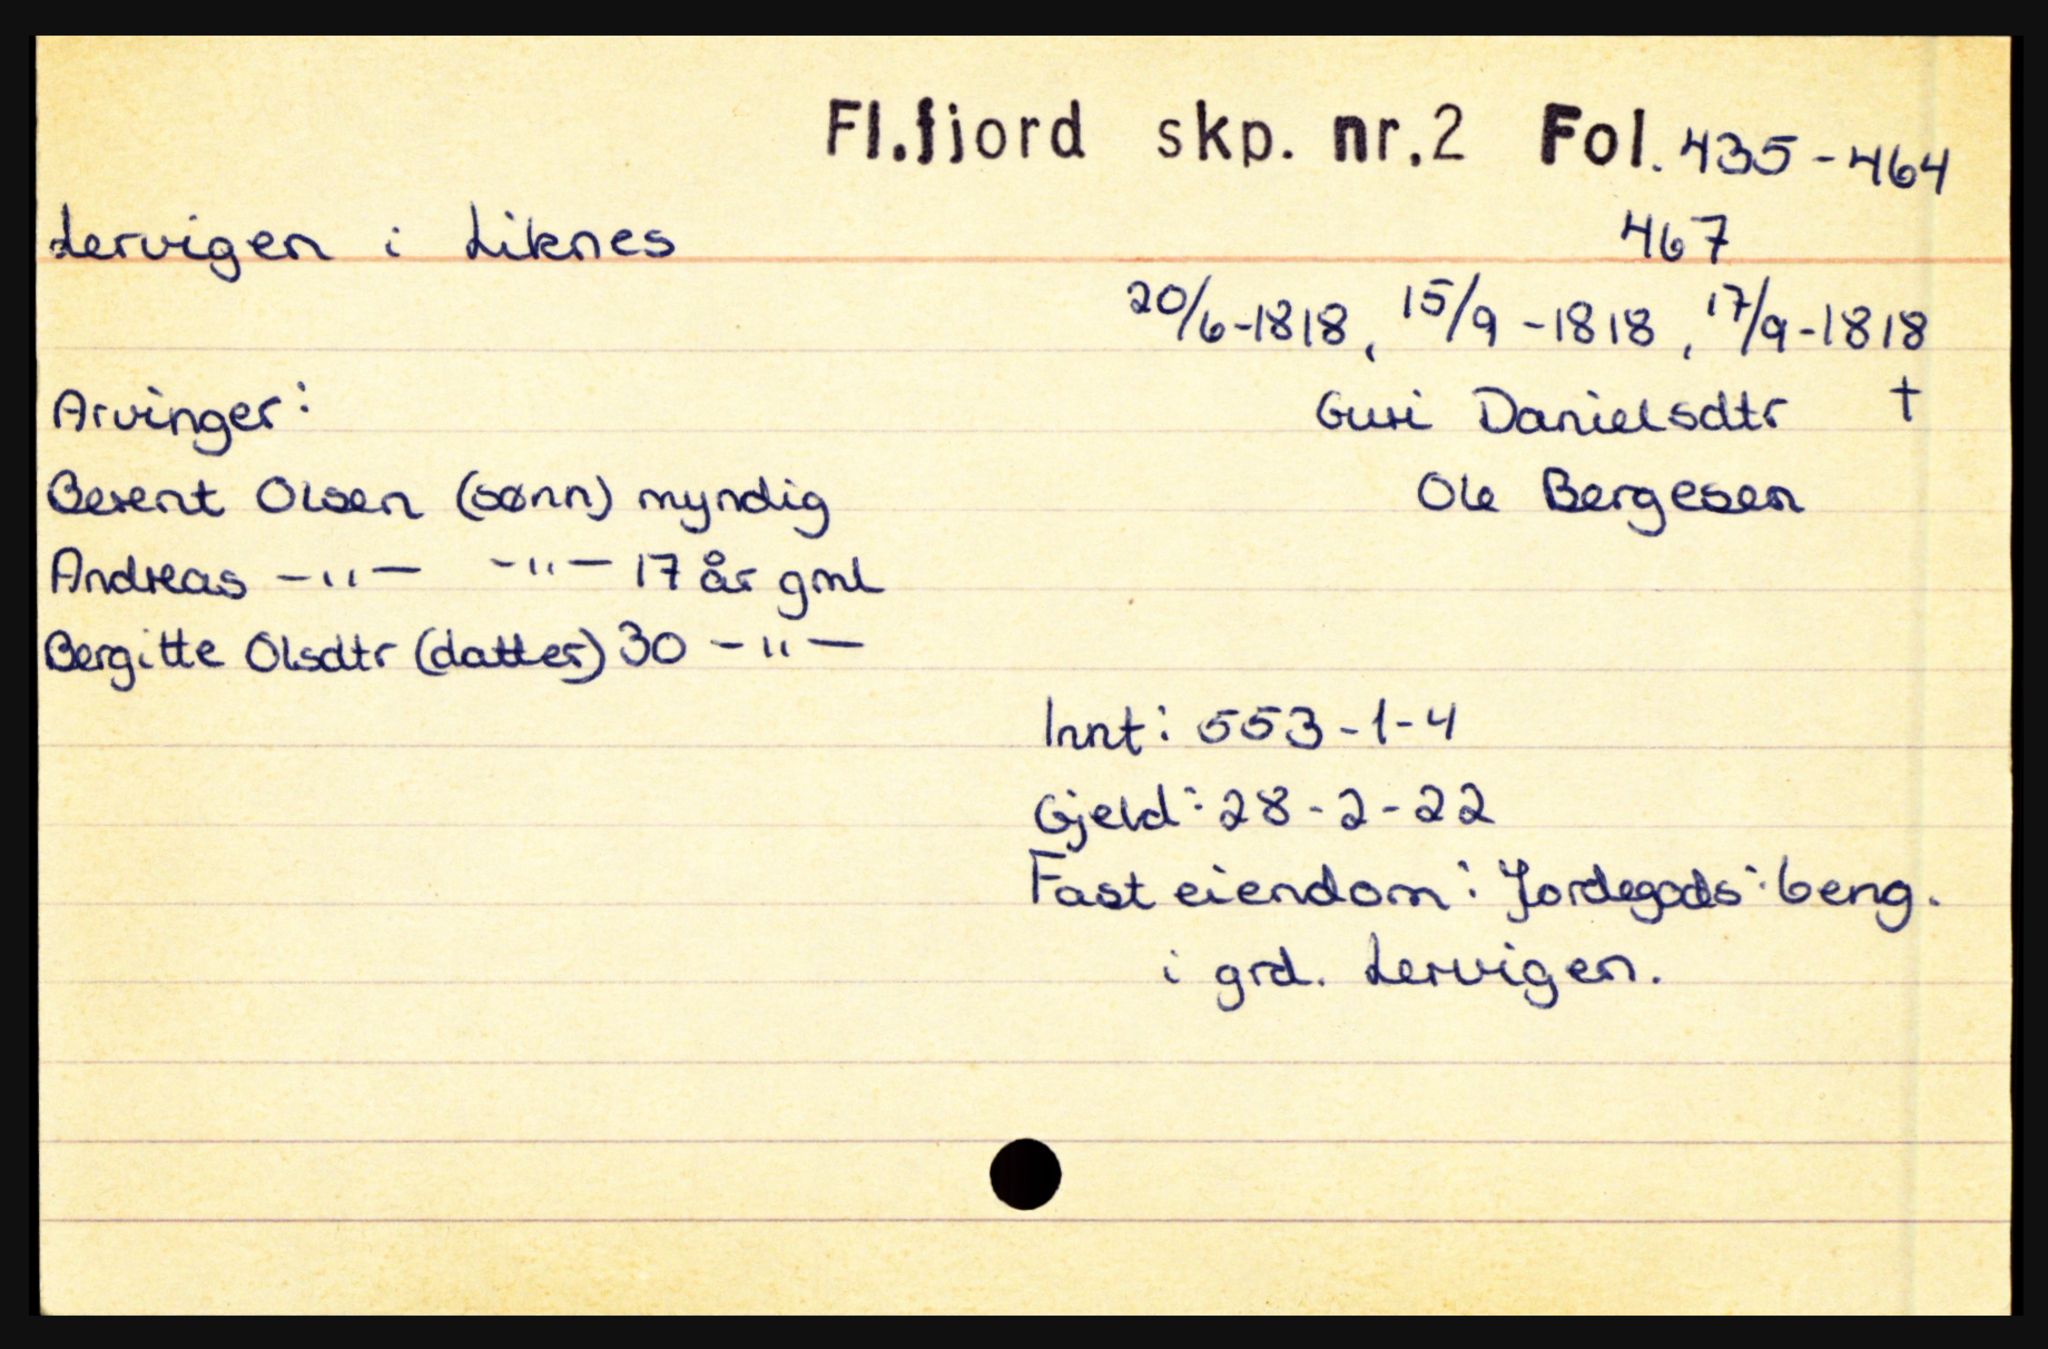 Fl.fjord skp. nr.2 Fol. 435-464
Lervigen i Liknes 467
20/6-1818, 15/9-1818, 17/9-1818
Arvinger: Guri Danielsdtr †
Berent Olsen (sønn) myndig Ole Bergesen
Andreas -"- -"- 17 år gml
Bergitte Olsdtr (datter) 30 -"-
Innt: 553-1-4
Gjeld: 28-2-22
Fast eiendom: Jordegods: beng.
i grd. Lervigen.